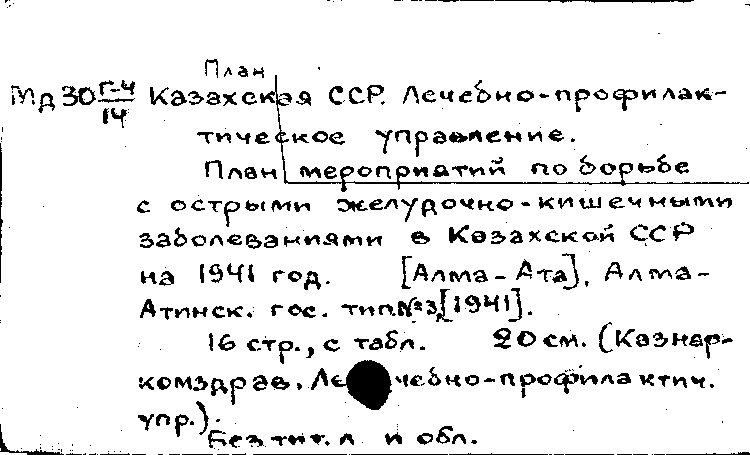 План
Мд30 Г-4/14 Казахская ССР. Лечебно-профилак-
тическое управление.
План мероприятий по борьбе
с острыми желудочно-кишечными
заболеваниями в Казахской ССР
на 1941 год. [Алма-Ата], Алма-
Атинск. гос. тип.№3,[1941].
16 стр., с табл. 20 см. (Казнар-
комздрав. Лечебно-профилактич.
упр.).
Без тит. л и обл.